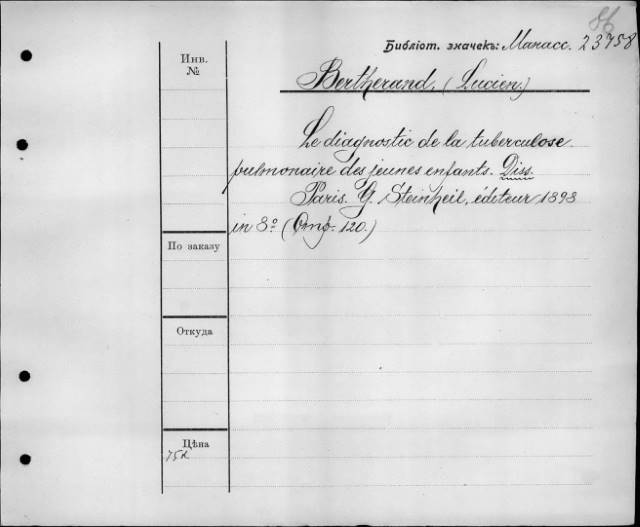 86
Библіот. значекъ: Манасс. 23758
Инв.
№
Bertherand, (Lucien.)
Le diagnostic de la tuberculose
pulmonaire des jeunes enfants. Diss.
Paris. G. Steinheil, éditeur 1898
in 8º (Стр. 120.)
По заказу
Откуда
Цѣна